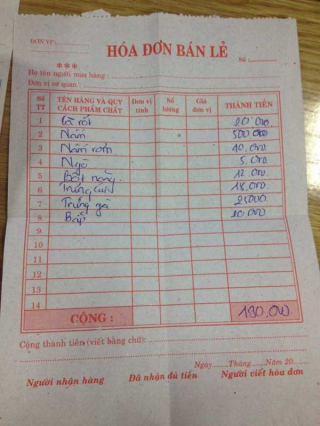 ĐƠN VỊ:
HÓA ĐƠN BÁN LẺ
***
Số :
Họ tên người mua hàng :
Đơn vị cơ quan :
Số TT TÊN HÀNG VÀ QUY CÁCH PHẨM CHẤT Đơn vị tính Số lượng Giá đơn vị THÀNH TIỀN
1 Cà rốt 20.000
2 Nấm
3 Nấm rơm 40.000
4 Ngò 5.000
5 Bột năng 12.000
6 Trứng cút 18.000
7 Trứng gà 25000
8 Bắp 20.000
9
10
11
12
13
14
CỘNG :
Cộng thành tiền (viết bằng chữ):
Ngày Tháng Năm 20
Người nhận hàng Đã nhận đủ tiền Người viết hóa đơn